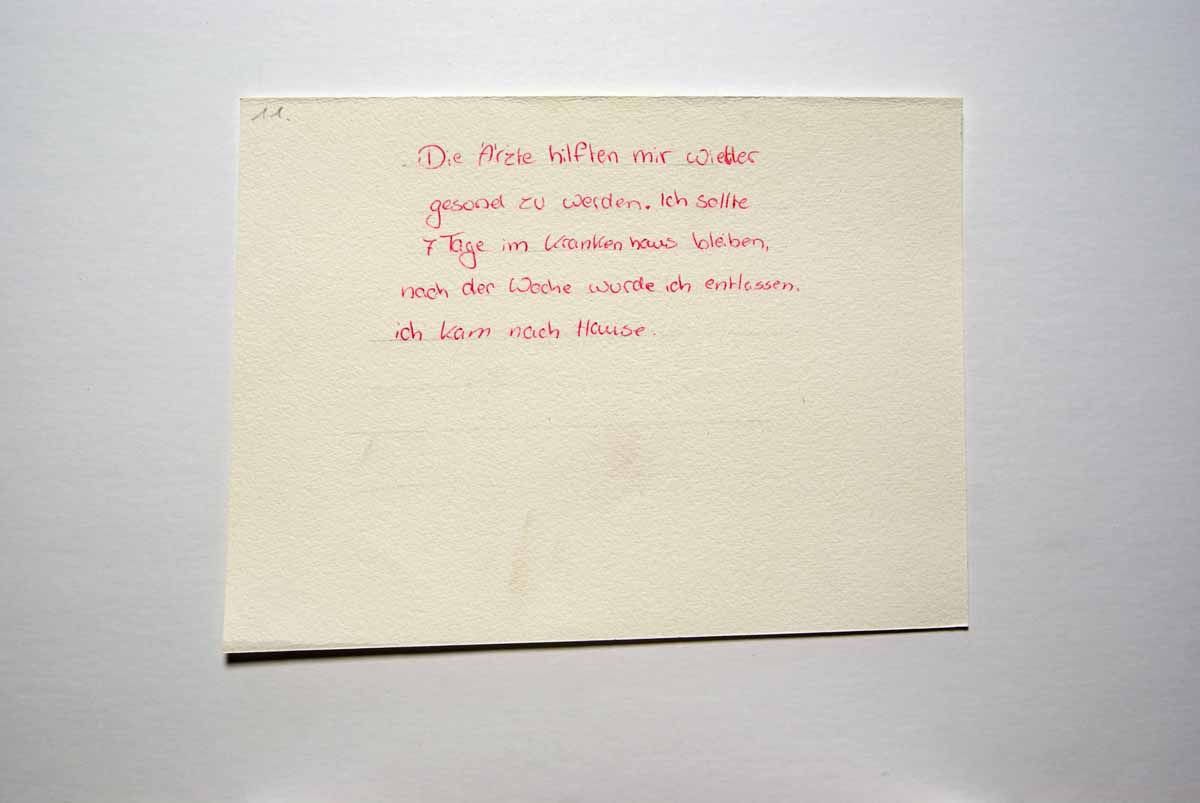 11.
Die Ärzte hilften mir wieder
gesond zu werden. Ich sollte
7 Tage im Krankenhaus bleiben,
nach der Woche wurde ich entlassen.
ich kam nach Hause.